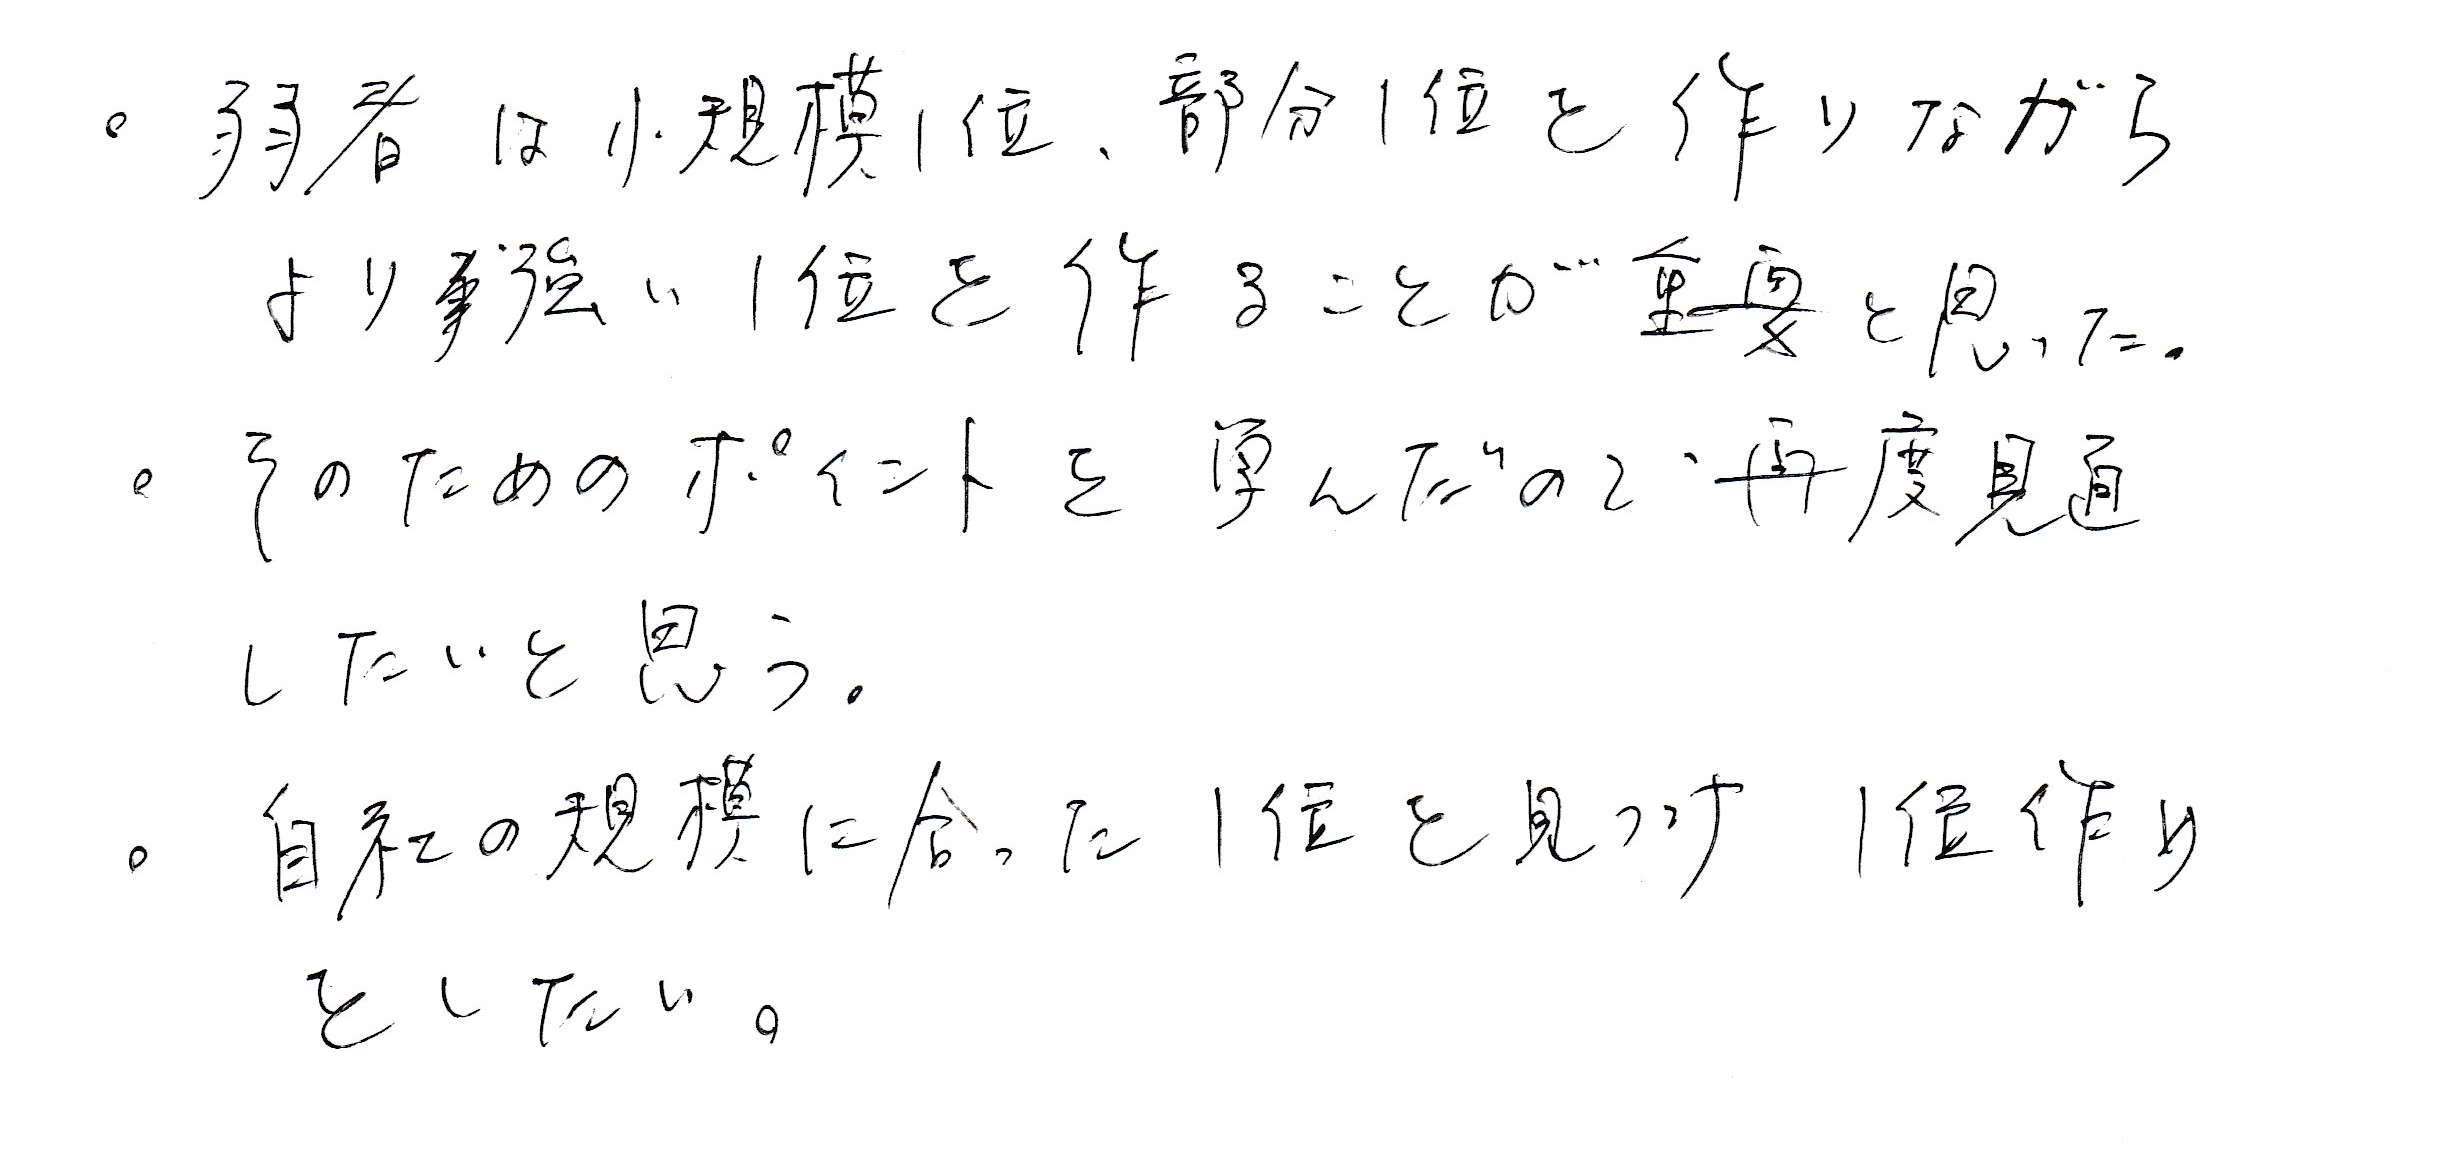 。弱者は小規模1位、部分1位を作りながら
より強い1位を作ることが重要と思った。
。そのためのポイントを学んだので再度見直
したいと思う。
。自社の規模に合った1位を見つけ 1位作り
をしたい。